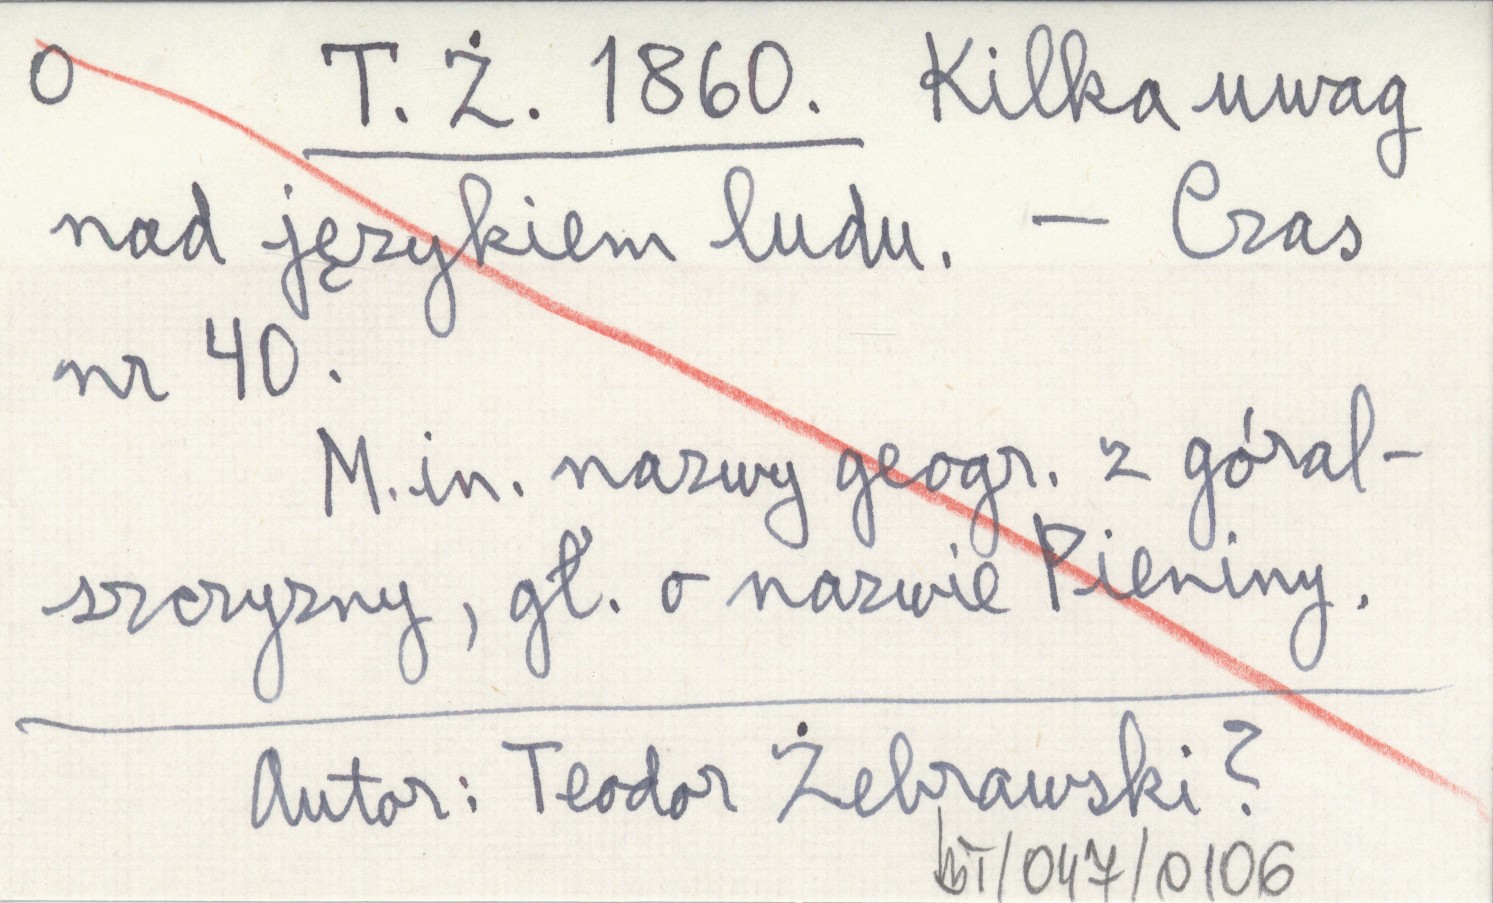 O T. Ż. 1860. Kilka uwag
nad językiem ludu. — Czas
nr 40.
M. in. nazwy geogr. z góral-
szczyzny, gł. o nazwie Pieniny.
Autor: Teodor Żebrawski?
/047/0106